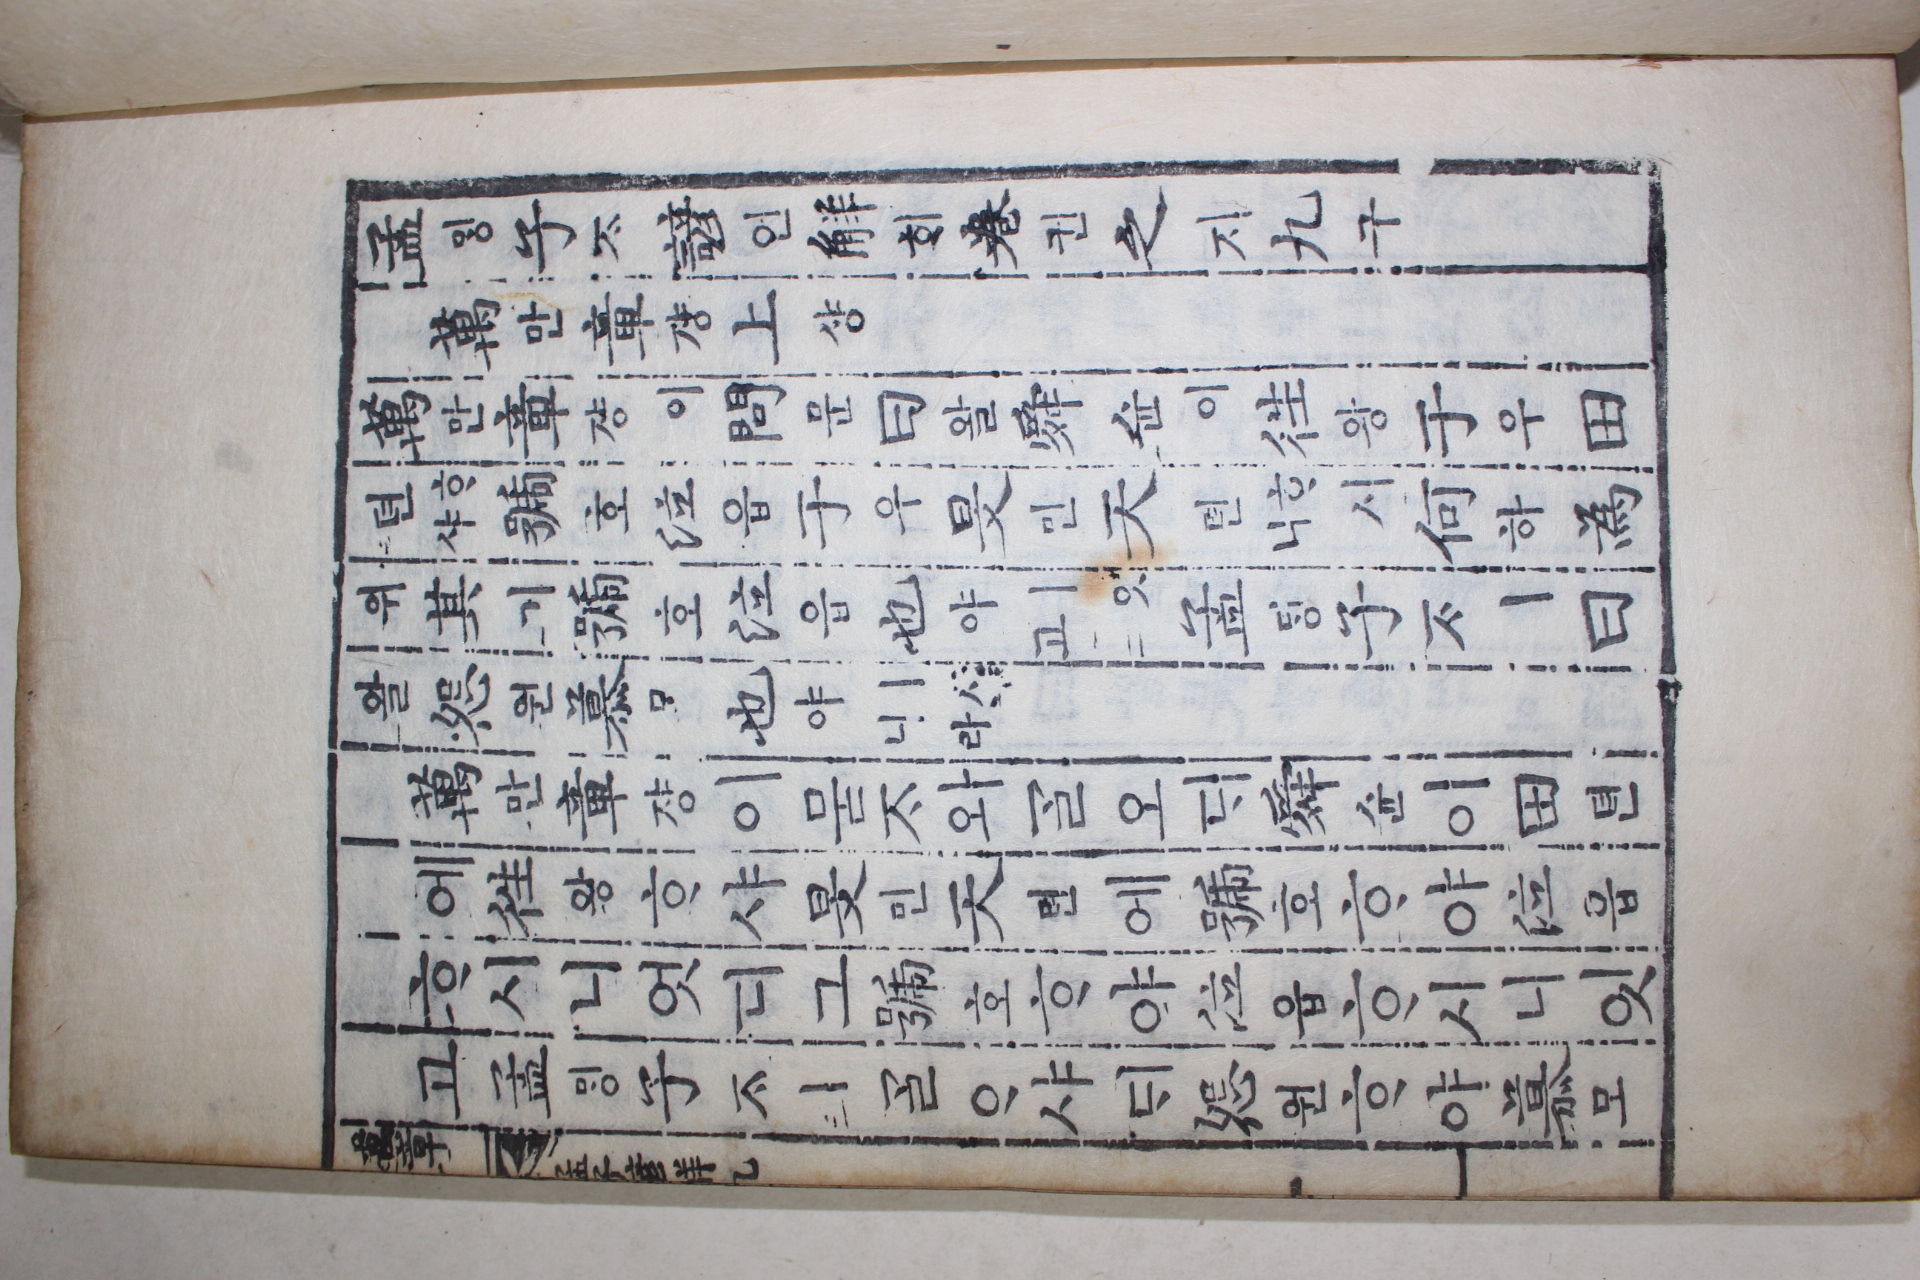 孟밍子ᄌᆞ諺언解ᄒᆡ卷권之지九구
萬만章쟝上샹
萬만章쟝이問문曰왈舜슌이往왕于우田
뎐ᄒᆞ샤號호泣읍于우旻민天텬ᄒᆞ시니何하為
위其기號호泣읍也야ㅣ잇고孟ᄆᆡᆼ子ᄌᆞㅣ曰
왈怨원慕모也야ㅣ시니라
萬만章쟝이묻ᄌᆞ와ᄀᆞᆯ오ᄃᆡ舜슌이田뎐
에往왕ᄒᆞ샤旻민天텬에號호ᄒᆞ야泣읍
ᄒᆞ시니엇디그號호ᄒᆞ야泣읍ᄒᆞ시니잇
고孟ᄆᆡᆼ子ᄌᆞㅣᄀᆞᆯᄋᆞ샤ᄃᆡ怨원ᄒᆞ야慕모
孟子諺解九